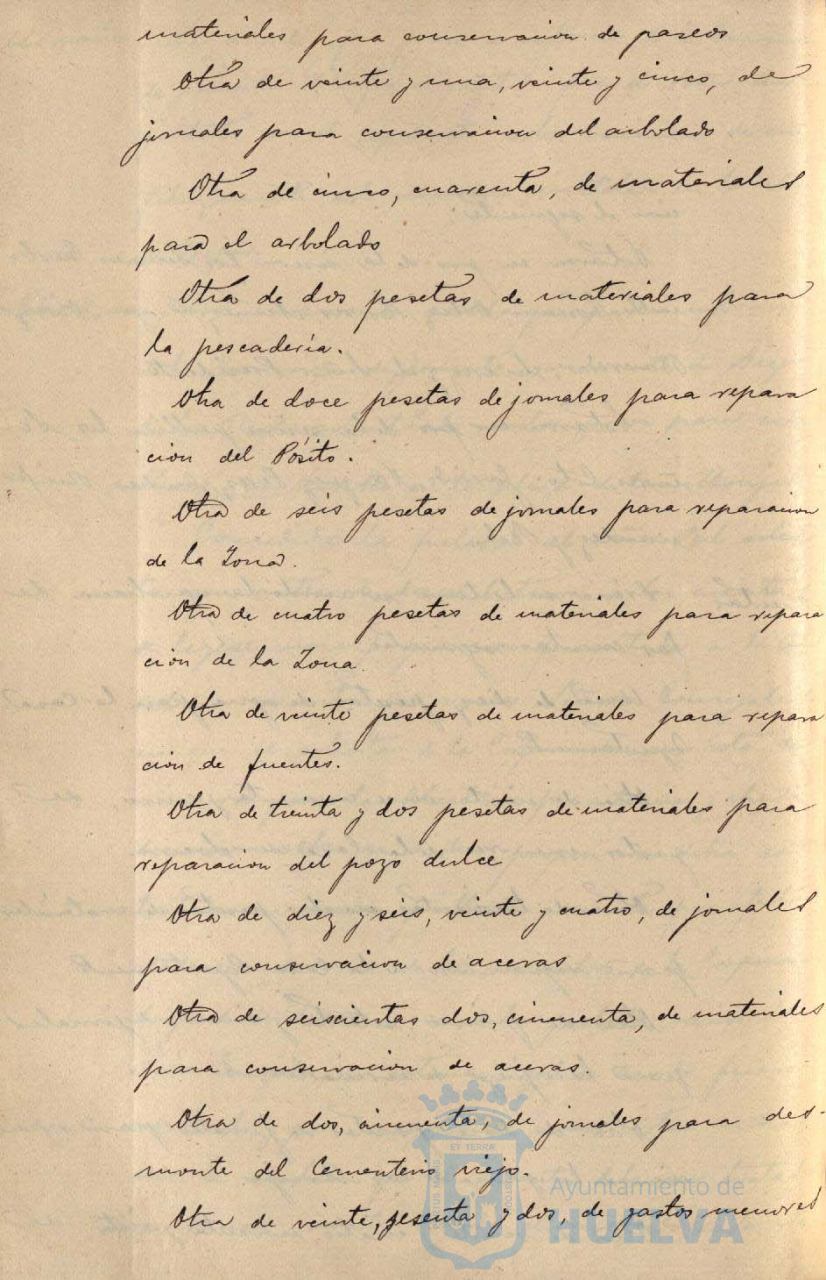 materiales para conservacion de paseos
Otra de veinte y una, veinte y cinco, de
jornales para conservacion del arbolado
Otra de cinco, cuarenta, de materiales
para el arbolado
Otra de dos pesetas de materiales para
la pescadería.
Otra de doce pesetas de jornales para repara
cion del Pósito.
Otra de seis pesetas de jornales para reparacion
de la Zona.
Otra de cuatro pesetas de materiales para repara
cion de la Zona
Otra de veinte pesetas de materiales para repara
cion de fuentes.
Otra de treinta y dos pesetas de materiales para
reparacion del pozo dulce
Otra de diez y seis, veinte y cuatro, de jornales
para conservacion de aceras
Otra de seiscientas dos, cincuenta, de materiales
para conservacion de aceras.
Otra de dos, cincuenta, de jornales para des-
monte del Cementerio viejo.
Otra de veinte, sesenta y dos, de gastos menores
ET TERRÆ
Ayuntamiento de
HUELVA